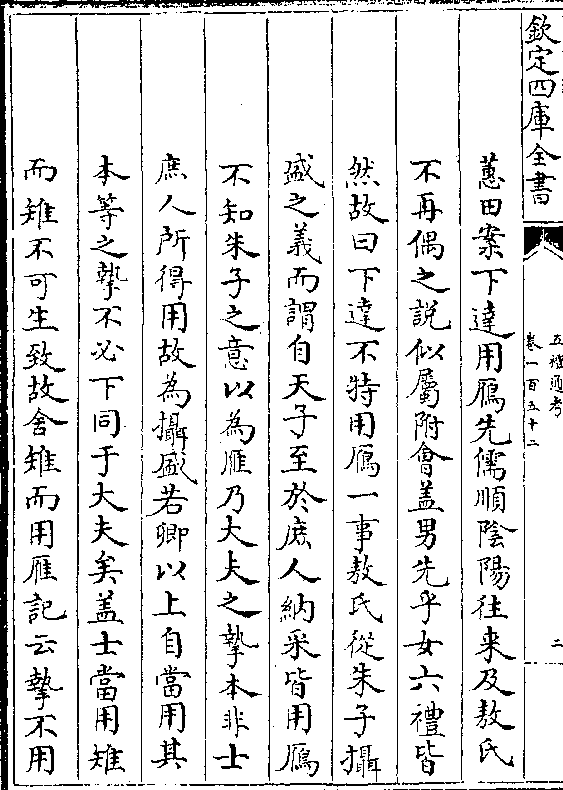 欽定四庫全書
五禮通考
卷一百五十二
二
蕙田案下達用鴈先儒順陰陽往来及敖氏
不再偶之説似屬附會盖男先乎女六禮皆
然故曰下達不特用鴈一事敖氏從朱子攝
盛之義而謂自天子至於庶人納采皆用鴈
不知朱子之意以為雁乃大夫之摯本非士
庶人所得用故為攝盛若卿以上自當用其
本等之摯不必下同于大夫矣盖士當用雉
而雉不可生致故舍雉而用雁記云摯不用